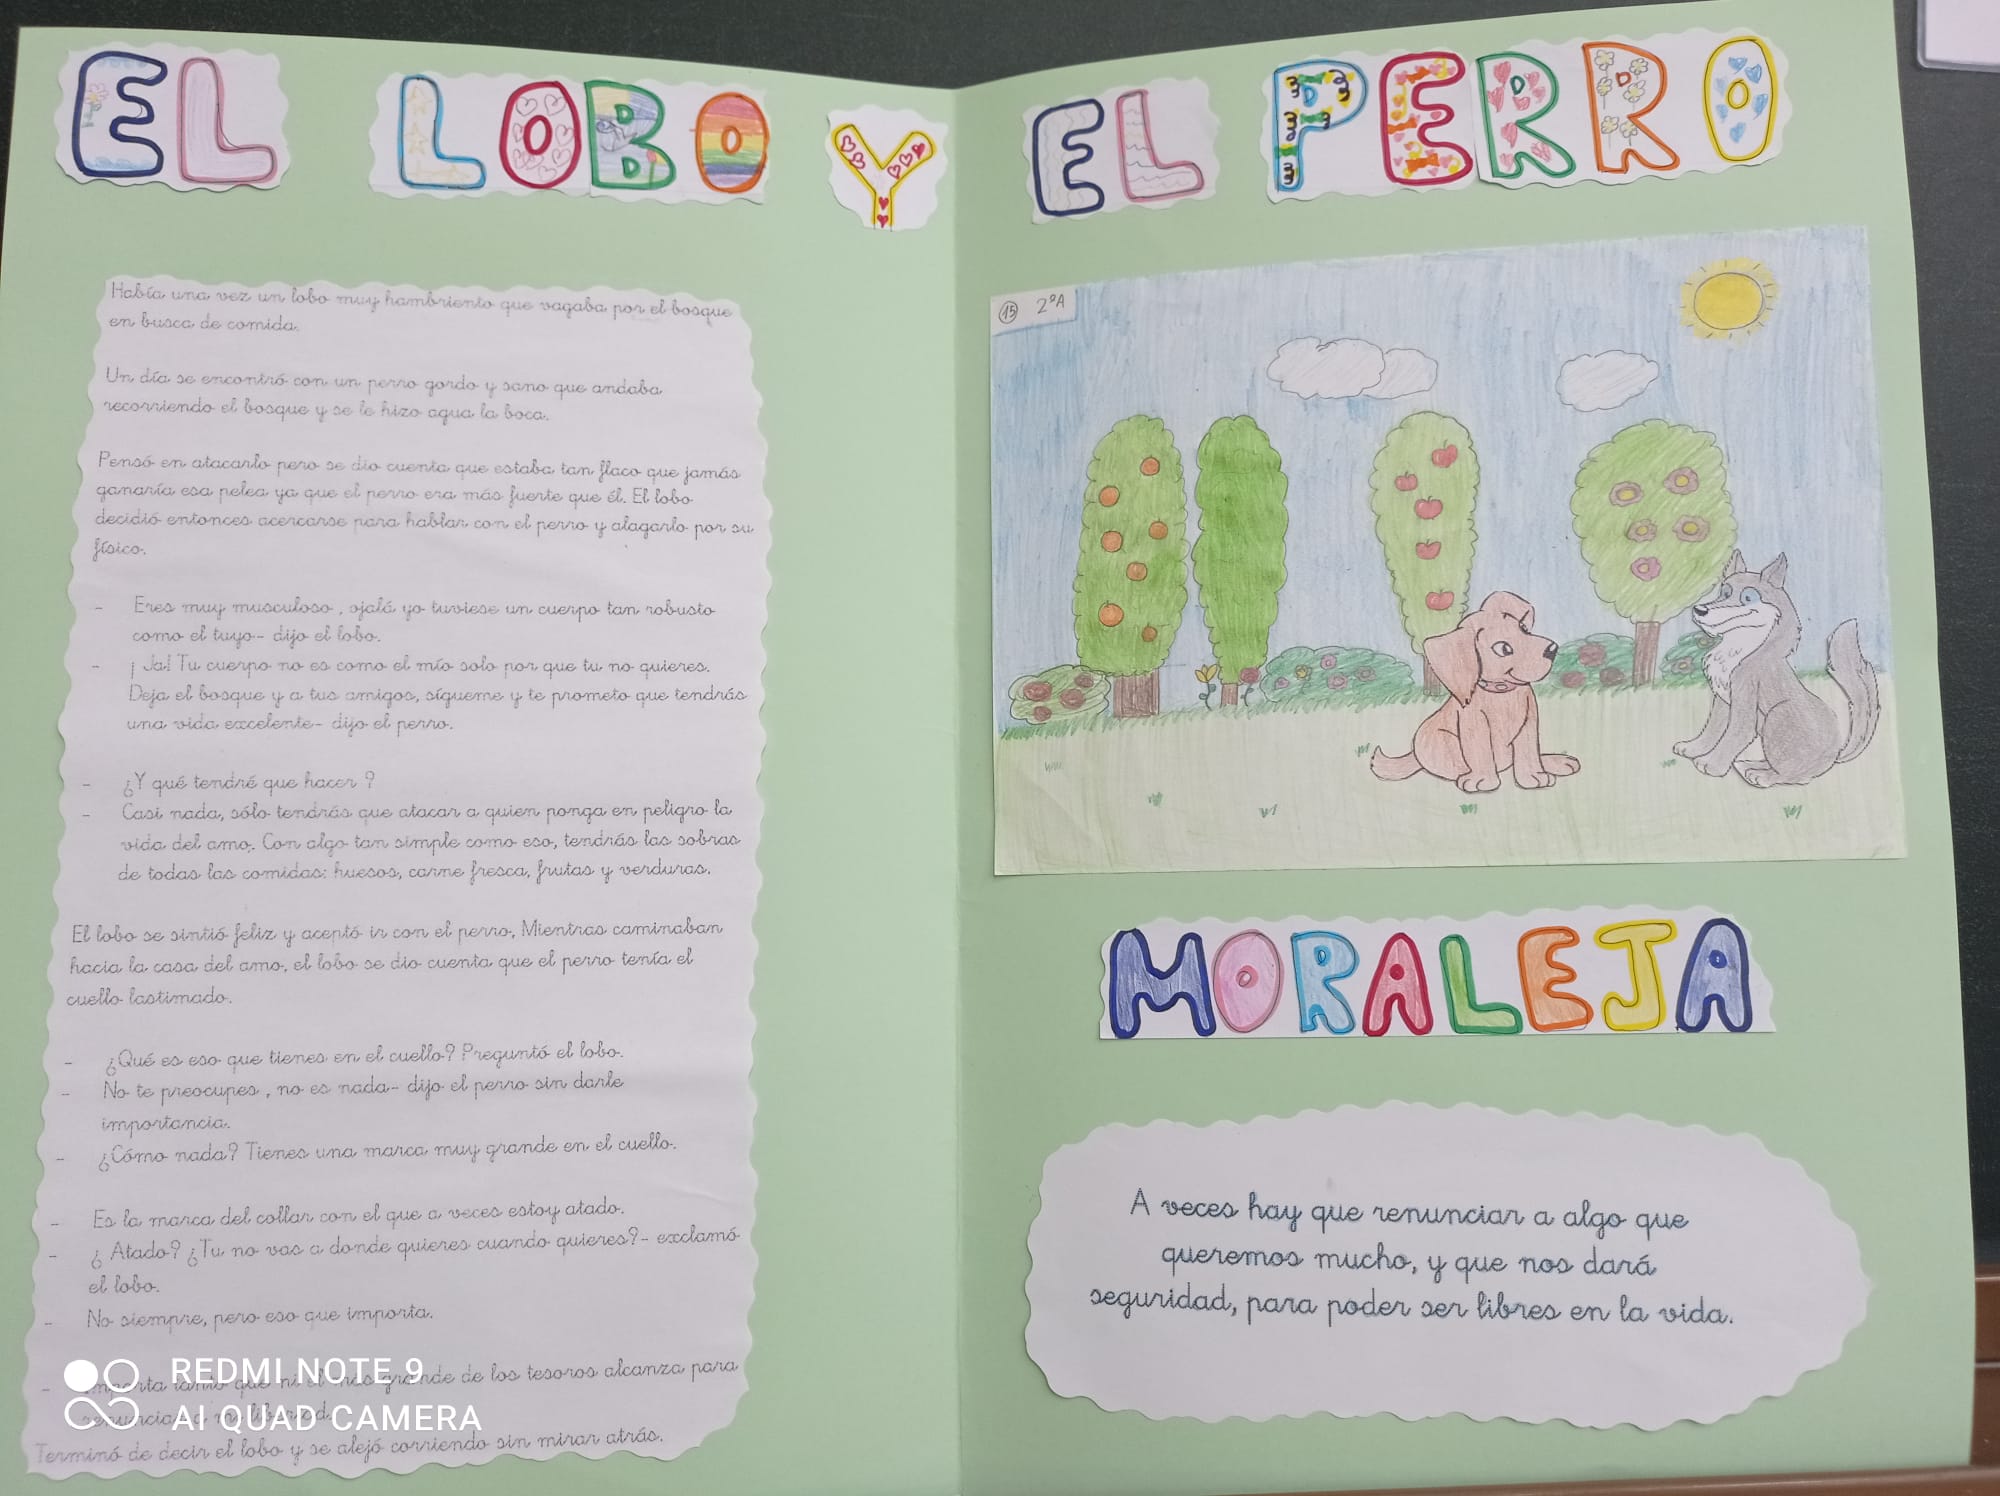 EL LOBO Y EL PERRO
Había una vez un lobo muy hambriento que vagaba por el bosque
en busca de comida.
Un día se encontró con un perro gordo y sano que andaba
recorriendo el bosque y se le hizo agua la boca.
Pensó en atacarlo pero se dio cuenta que estaba tan flaco que jamás
ganaría esa pelea ya que el perro era más fuerte que él. El lobo
decidió entonces acercarse para hablar con el perro y alagarlo por su
físico.
- Eres muy musculoso , ojalá yo tuviese un cuerpo tan robusto
como el tuyo- dijo el lobo.
- ¡ Ja! Tu cuerpo no es como el mío solo por que tu no quieres.
Deja el bosque y a tus amigos, sígueme y te prometo que tendrás
una vida excelente- dijo el perro.
- ¿Y qué tendré que hacer ?
- Casi nada, sólo tendrás que atacar a quien ponga en peligro la
vida del amo. Con algo tan simple como eso, tendrás las sobras
de todas las comidas: huesos, carne fresca, frutas y verduras.
El lobo se sintió feliz y aceptó ir con el perro. Mientras caminaban
hacia la casa del amo, el lobo se dio cuenta que el perro tenía el
cuello lastimado.
- ¿Qué es eso que tienes en el cuello? Preguntó el lobo.
- No te preocupes , no es nada- dijo el perro sin darle
importancia.
- ¿Cómo nada? Tienes una marca muy grande en el cuello.
- Es la marca del collar con el que a veces estoy atado.
- ¿ Atado? ¿Tu no vas a donde quieres cuando quieres?- exclamó
el lobo.
- No siempre, pero eso que importa.
- Importa tanto que ni el más grande de los tesoros alcanza para
renunciar a mi libertad.
Terminó de decir el lobo y se alejó corriendo sin mirar atrás.
15 2ºA
MORALEJA
A veces hay que renunciar a algo que
queremos mucho, y que nos dará
seguridad, para poder ser libres en la vida.
REDMI NOTE 9
AI QUAD CAMERA